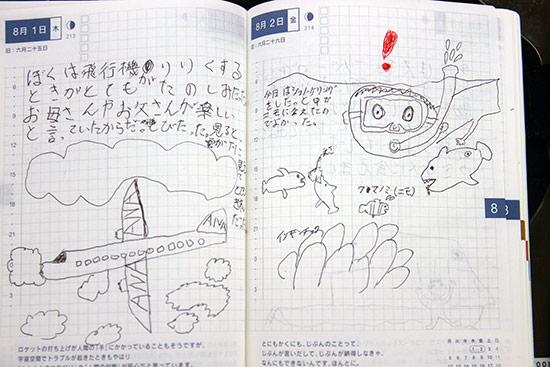 8月1日 木
213
旧:六月二十五日
ぼくは飛行機のりりくする
ときがとてもがたのしみだった
お母さんやお父さんが楽しい
と言っていたからだ。とびたった。見ると、
ANA
ANA
ANA
ロケットの打ち上げが人間の「手」にかかっていることもそうですが、
宇宙空間でトラブルが起きたときもやはり
8月2日 金
214
旧:六月二十六日
!
今日はシュノーケリング
をした。と中が
ニモに会えたの
でよかった。
クマノミ(ニモ)
イソギンチャク
8
8
とにもかくにも、じぶんのことって、
じぶんが言いだして、じぶんが納得しなきゃ、
なんにもできないんです、ほんとに。
月 火 水 木 金 土 日
1 2 3 4